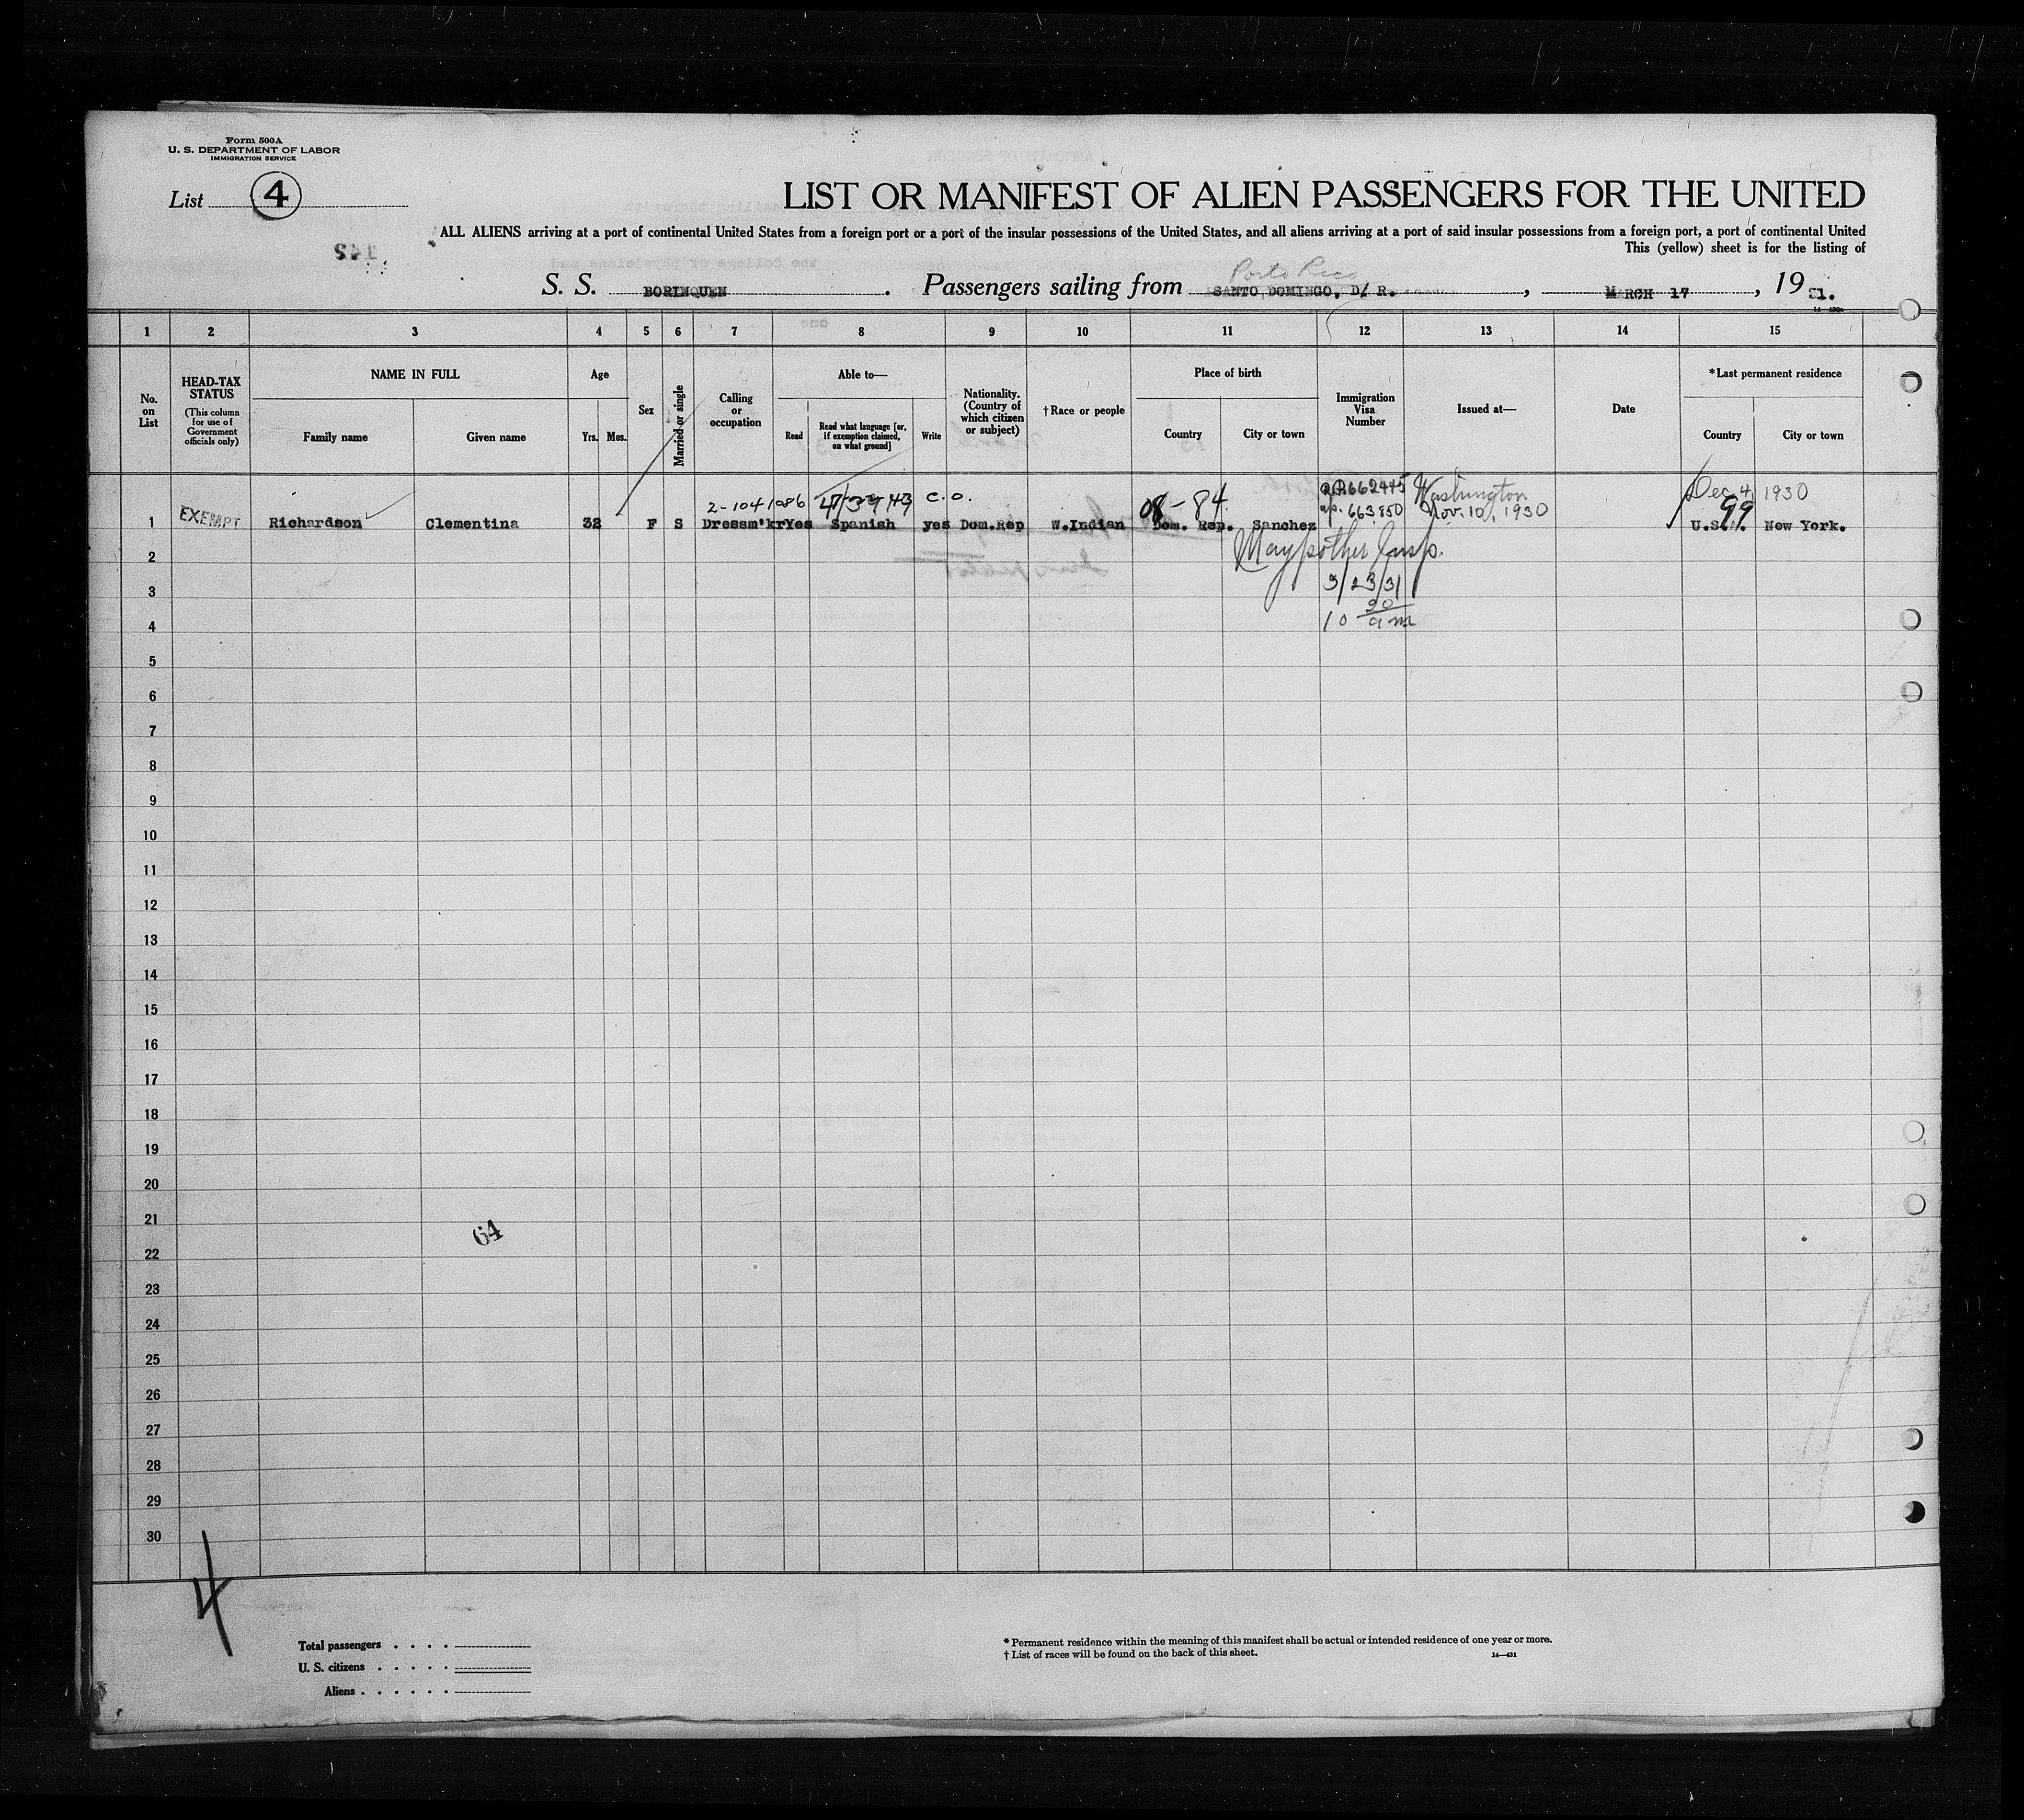 Form 500A
U. S. DEPARTMENT OF LABOR
IMMIGRATION SERVICE
List 4
LIST OR MANIFEST OF ALIEN PASSENGERS FOR THE UNITED
ALL ALIENS arriving at a port of continental United States from a foreign port or a port of the insular possessions of the United States, and all aliens arriving at a port of said insular possessions from a foreign port, a port of continental United
This (yellow) sheet is for the listing of
Porto Rico
S. S. BORINQUEN. Passengers sailing from SANTO DOMINGO, D/ R. , MARCH 17 , 1931.
1 2 3 4 5 6 7 8 9 10 11 12 13 14 15
No. on List
HEAD-TAX STATUS
(This column for use of Government officials only)
NAME IN FULL
Family name
Given name
Age
Yrs. Mos.
Sex
Married or single
Calling or occupation
Able to—
Read
Read what language [or, if exemption claimed, on what ground]
Write
Nationality. (Country of which citizen or subject)
† Race or people
Place of birth
Country
City or town
Immigration Visa Number
Issued at—
Date
*Last permanent residence
Country
City or town
2-1041086 C.O. 08-84 R.P.662445 Washington Dec 4, 1930
663850 Nov. 10, 1930 99
1 EXEMPT Richardson Clementina 32 F S Dressm'kr Yes Spanish yes Dom.Rep W.Indian Dom. Rep. Sanchez U.S.A. New York.
2
3/23/31
3
10 30 am
4
5
6
7
8
9
10
11
12
13
14
15
16
17
18
19
20
21
64
22
23
24
25
26
27
28
29
30
4
Total passengers . . . .
U. S. citizens . . . . .
Aliens . . . . . .
* Permanent residence within the meaning of this manifest shall be actual or intended residence of one year or more.
† List of races will be found on the back of this sheet.
14—431